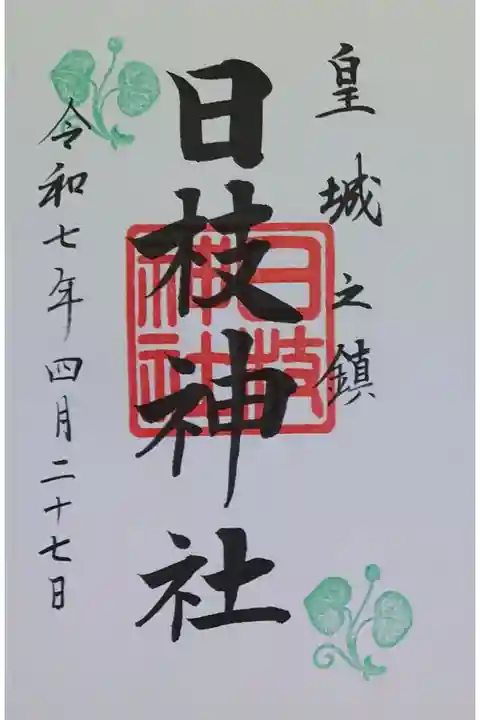 皇城之鎮
日枝神社
日枝神社
令和七年四月二十七日